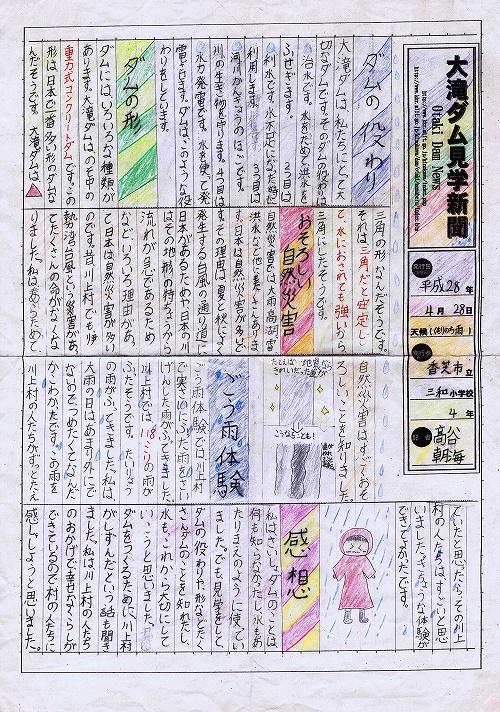 大滝ダム見学新聞
Otaki Dam News
発行日
平成28年
4月28日
天候(くもりのち雨)
香芝市立
三和小学校
4年
ダムの役わり
大滝ダムは、私たちにとって大
切なダムです。そのダムの役わりは
治水です。水をためて洪水を
ふせぎます。2つ目は
利水です。水不足になった時に
利用します。3つ目は
河川かんきょうのほごです。
川の生き物を守ります。4つ目は
水力発電です。水を使って発
電できます。ダムはこのような役
わりをしています。
ダムの形
ダムにはいろいろな種類が
あります。大滝ダムは、その中の
重力式コンクリートダムです。この
形は、日本で一番多い形のダムな
んだそうです。大滝ダムは、
三角の形なんだそうです。
それは、三角だと安定し
て、水におされても強いから、
三角にしたそうです。
おそろしい
自然災害
自然災害では、大雨、高潮、雪、
洪水など他に多くさんありま
す。その理由は、夏と秋によく
発生する台風の通り道に
日本があるためや、日本の川
はその地形の特ちょうから
流れが急であるため
などいろいろ理由があっ
て日本は自然災害が多い
のです。昔、川上村でも伊
勢湾台風という災害があっ
てたくさんの命がなくな
りました。私はあらためて
自然災害はすごくおそ
ろしいことを知りました。
たとえば…地震なら
きれいだった道が
こうなることも!
ごう雨体験
ごう雨体験では、川上村
で実さいふった雨をさい
げんした雨がふってきました。
川上村では118ミリの雨が
ふったそうです。たいりょう
の雨がふってきました。私は、
大雨の日はあまり外にで
ないのでつめたくてなんだ
かこわかったです。この雨を
川上村の人たちがずっとたえ
ていたと思ったら、その川上
村の人たちはすごいと思
いました。きちょうな体験が
できてよかったです。
感想
私はさいしょダムのことは
何も知らなかったし、水もあ
たりまえのように使ってい
ました。でも、見学をして、
ダムの役わりや形などたく
さんダムのことを知れたし、
水もこれから大切にして
いこうと思いました。
ダムをつくるために、川上村
がしずんだという話も聞き
ました。私は川上村の人たち
のおかげで幸せなくらしが
できているので村の人たちに
感しゃしようと思いました。